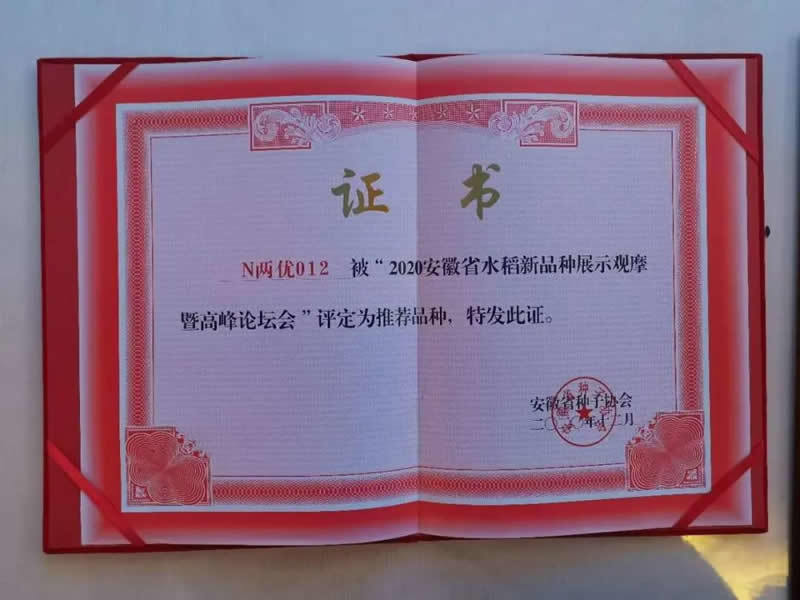 证书
N两优012 被“2020安徽省水稻新品种展示观摩
暨高峰论坛会”评定为推荐品种，特发此证。
安徽省种子协会
二〇二〇年十二月